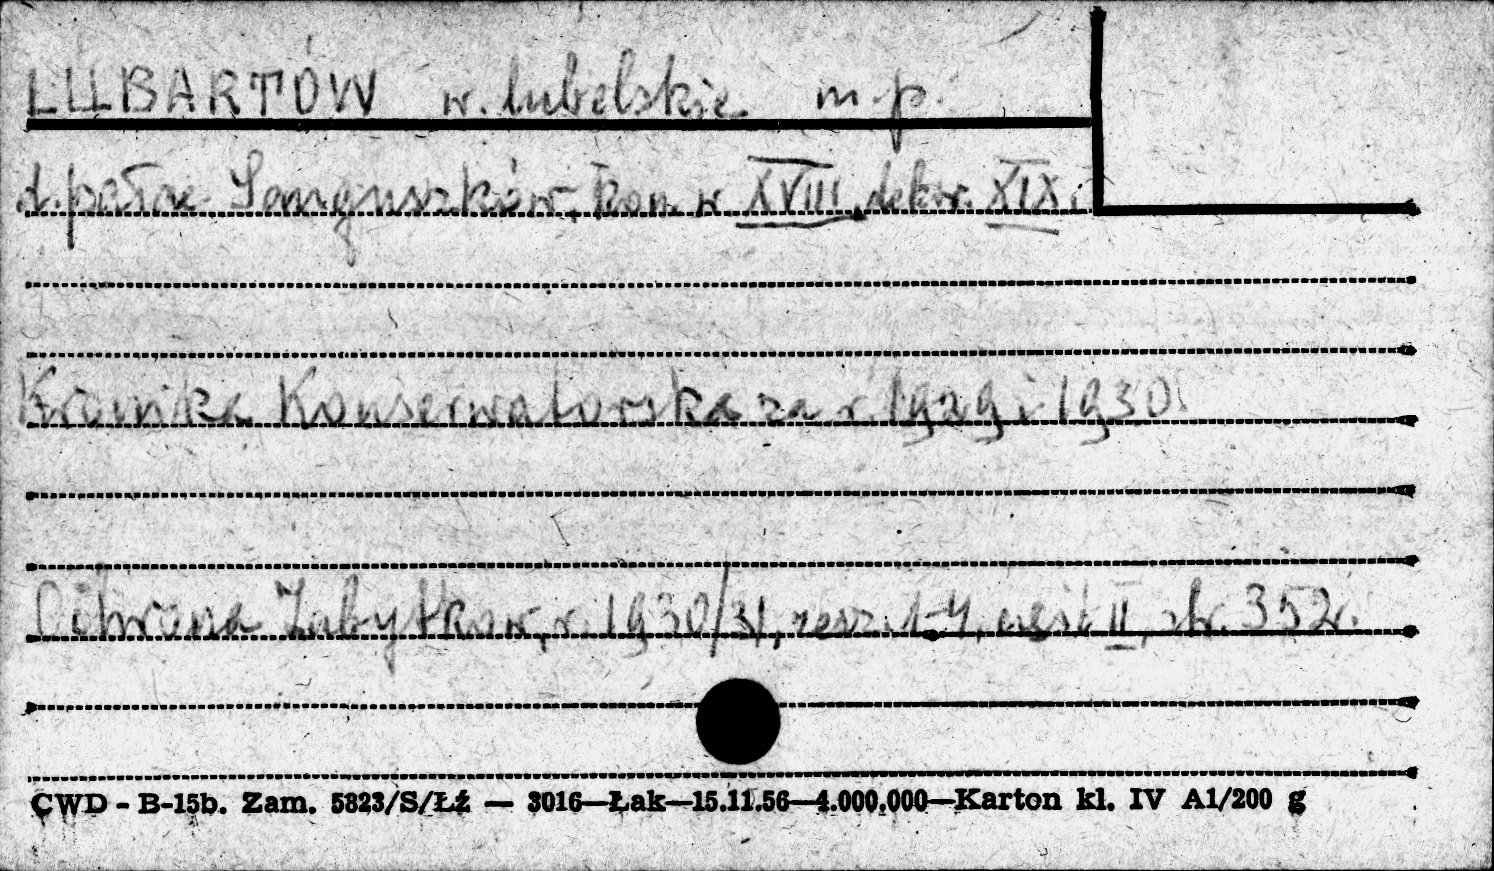 LUBARTÓW w. lubelskie m.p.
d. pałac Sanguszków, kon. w XVIII, dekor. XIX.
Kronika Konserwatorska za r. 1929 i 1930.
Ochrona Zabytków, r. 1930/31, zesz. 1-4, część II, str. 352.
CWD - B-15b. Zam. 5823/S/Łź — 3016—Łak—15.11.56—4.000.000—Karton kl. IV A1/200 g